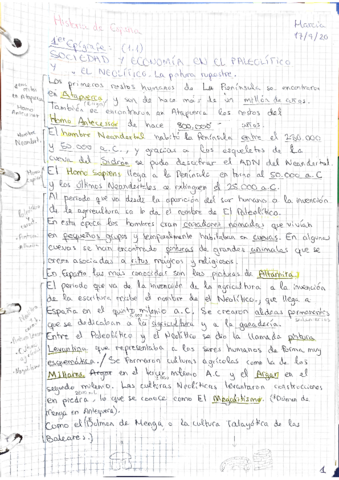 Historia de España
María
17/9/20
1er Epígrafe. (1.1)
SOCIEDAD Y ECONOMÍA EN EL PALEOLÍTICO
Y EL NEOLÍTICO. La pintura rupestre.
Los primeros restos humanos de La Península se encontraron
en Atapuerca, y son de hace más de un millón de años.
También se encontraron en Atapuerca los restos del
Homo Antecessor de hace 800.000 años.
El hombre Neandertal habitó la Península entre el 250.000
y 50.000 a.C., y gracias a los esqueletos de la
cueva del Sidrón se pudo descifrar el ADN del Neandertal
El Homo Sapiens llega a la Península en torno al 50.000 a.C
y los últimos Neandertales se extinguen el 25.000 a.C.
Al periodo que va desde la aparición del ser humano a la invención
de la agricultura se le da el nombre de El Paleolítico.
En esta época los hombres eran cazadores nómadas, que vivían
en pequeños grupos y temporalmente habitaban en cuevas. En algunas
cuevas se han encontrado pinturas de grandes animales que se
cree asociadas a ritos mágicos y religiosos.
En España las más conocidas son las pinturas de Altamira.
El periodo que va de la invención de la agricultura a la invención
de la escritura recibe el nombre de el Neolítico, que llega a
España en el quinto milenio a.C. Se crearon aldeas permanentes
que se dedicaban a la agricultura y a la ganadería.
Entre el Paleolítico y el Neolítico se dio la llamada pintura
Levantina que representaba a los seres humanos de forma muy
esquemática. Se formaron culturas agrícolas como la de los
Millares en el tercer milenio A.C y el Argar en el
segundo milenio. Las culturas Neolíticas levantaron construcciones
en piedra, lo que se conoce como El Megalitismo. (*Dolmen de
Menga en Antequera).
Como el (Dolmen de Menga o la cultura Talayótica de las
Baleares.)
1